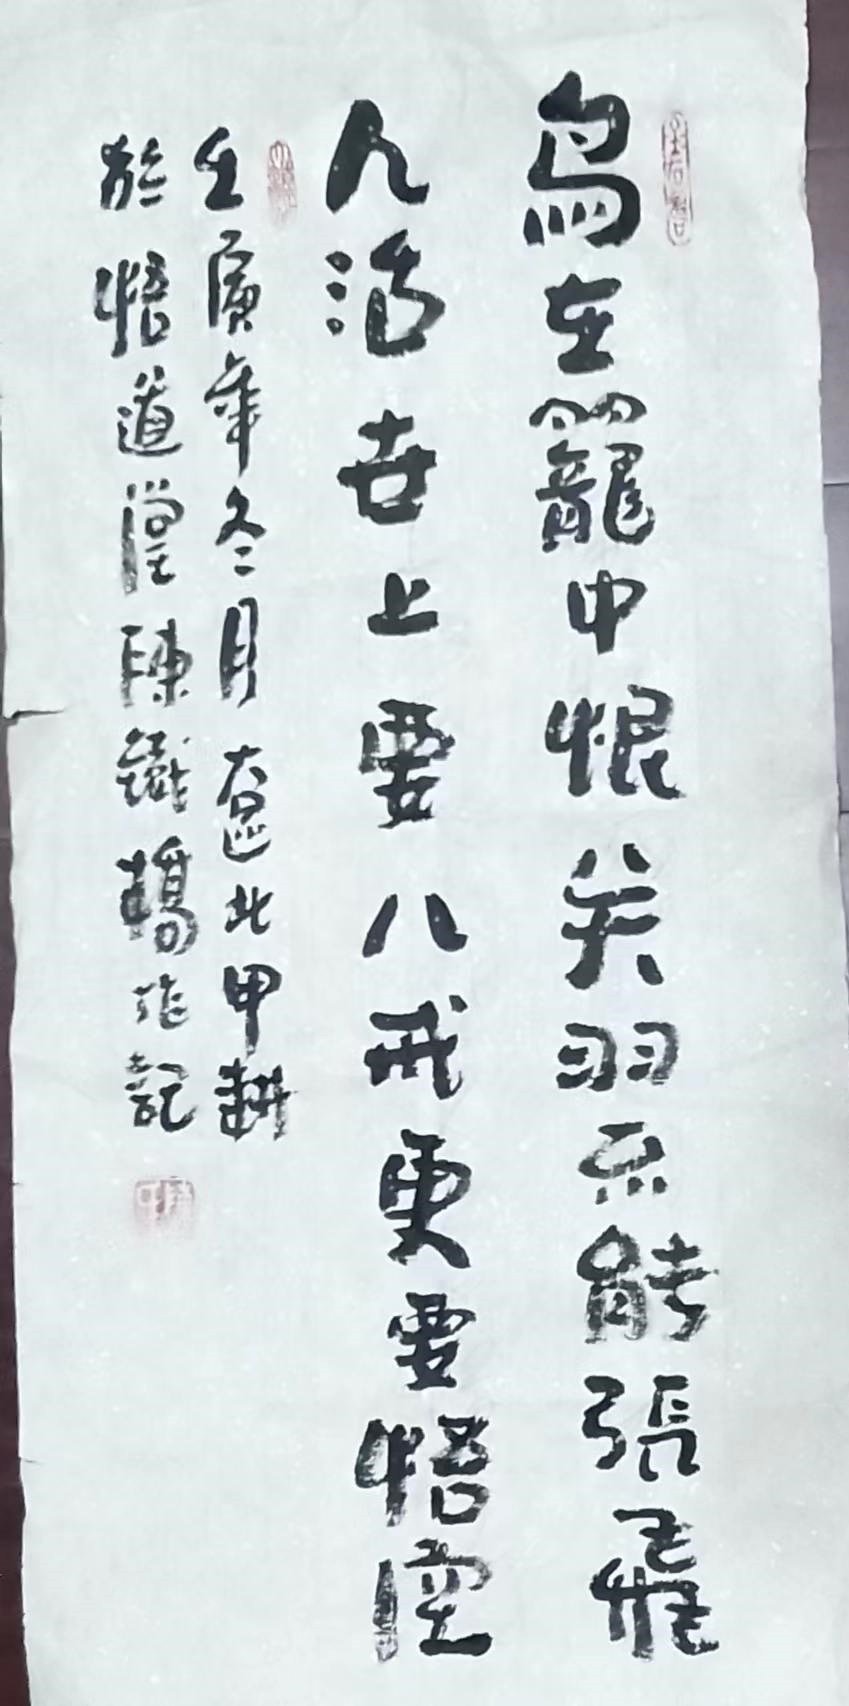 鳥在籠中恨关羽不能張飛
人活世上要八戒更要悟空
壬寅年冬月北甲耕
於悟道堂陳鐵橋作記